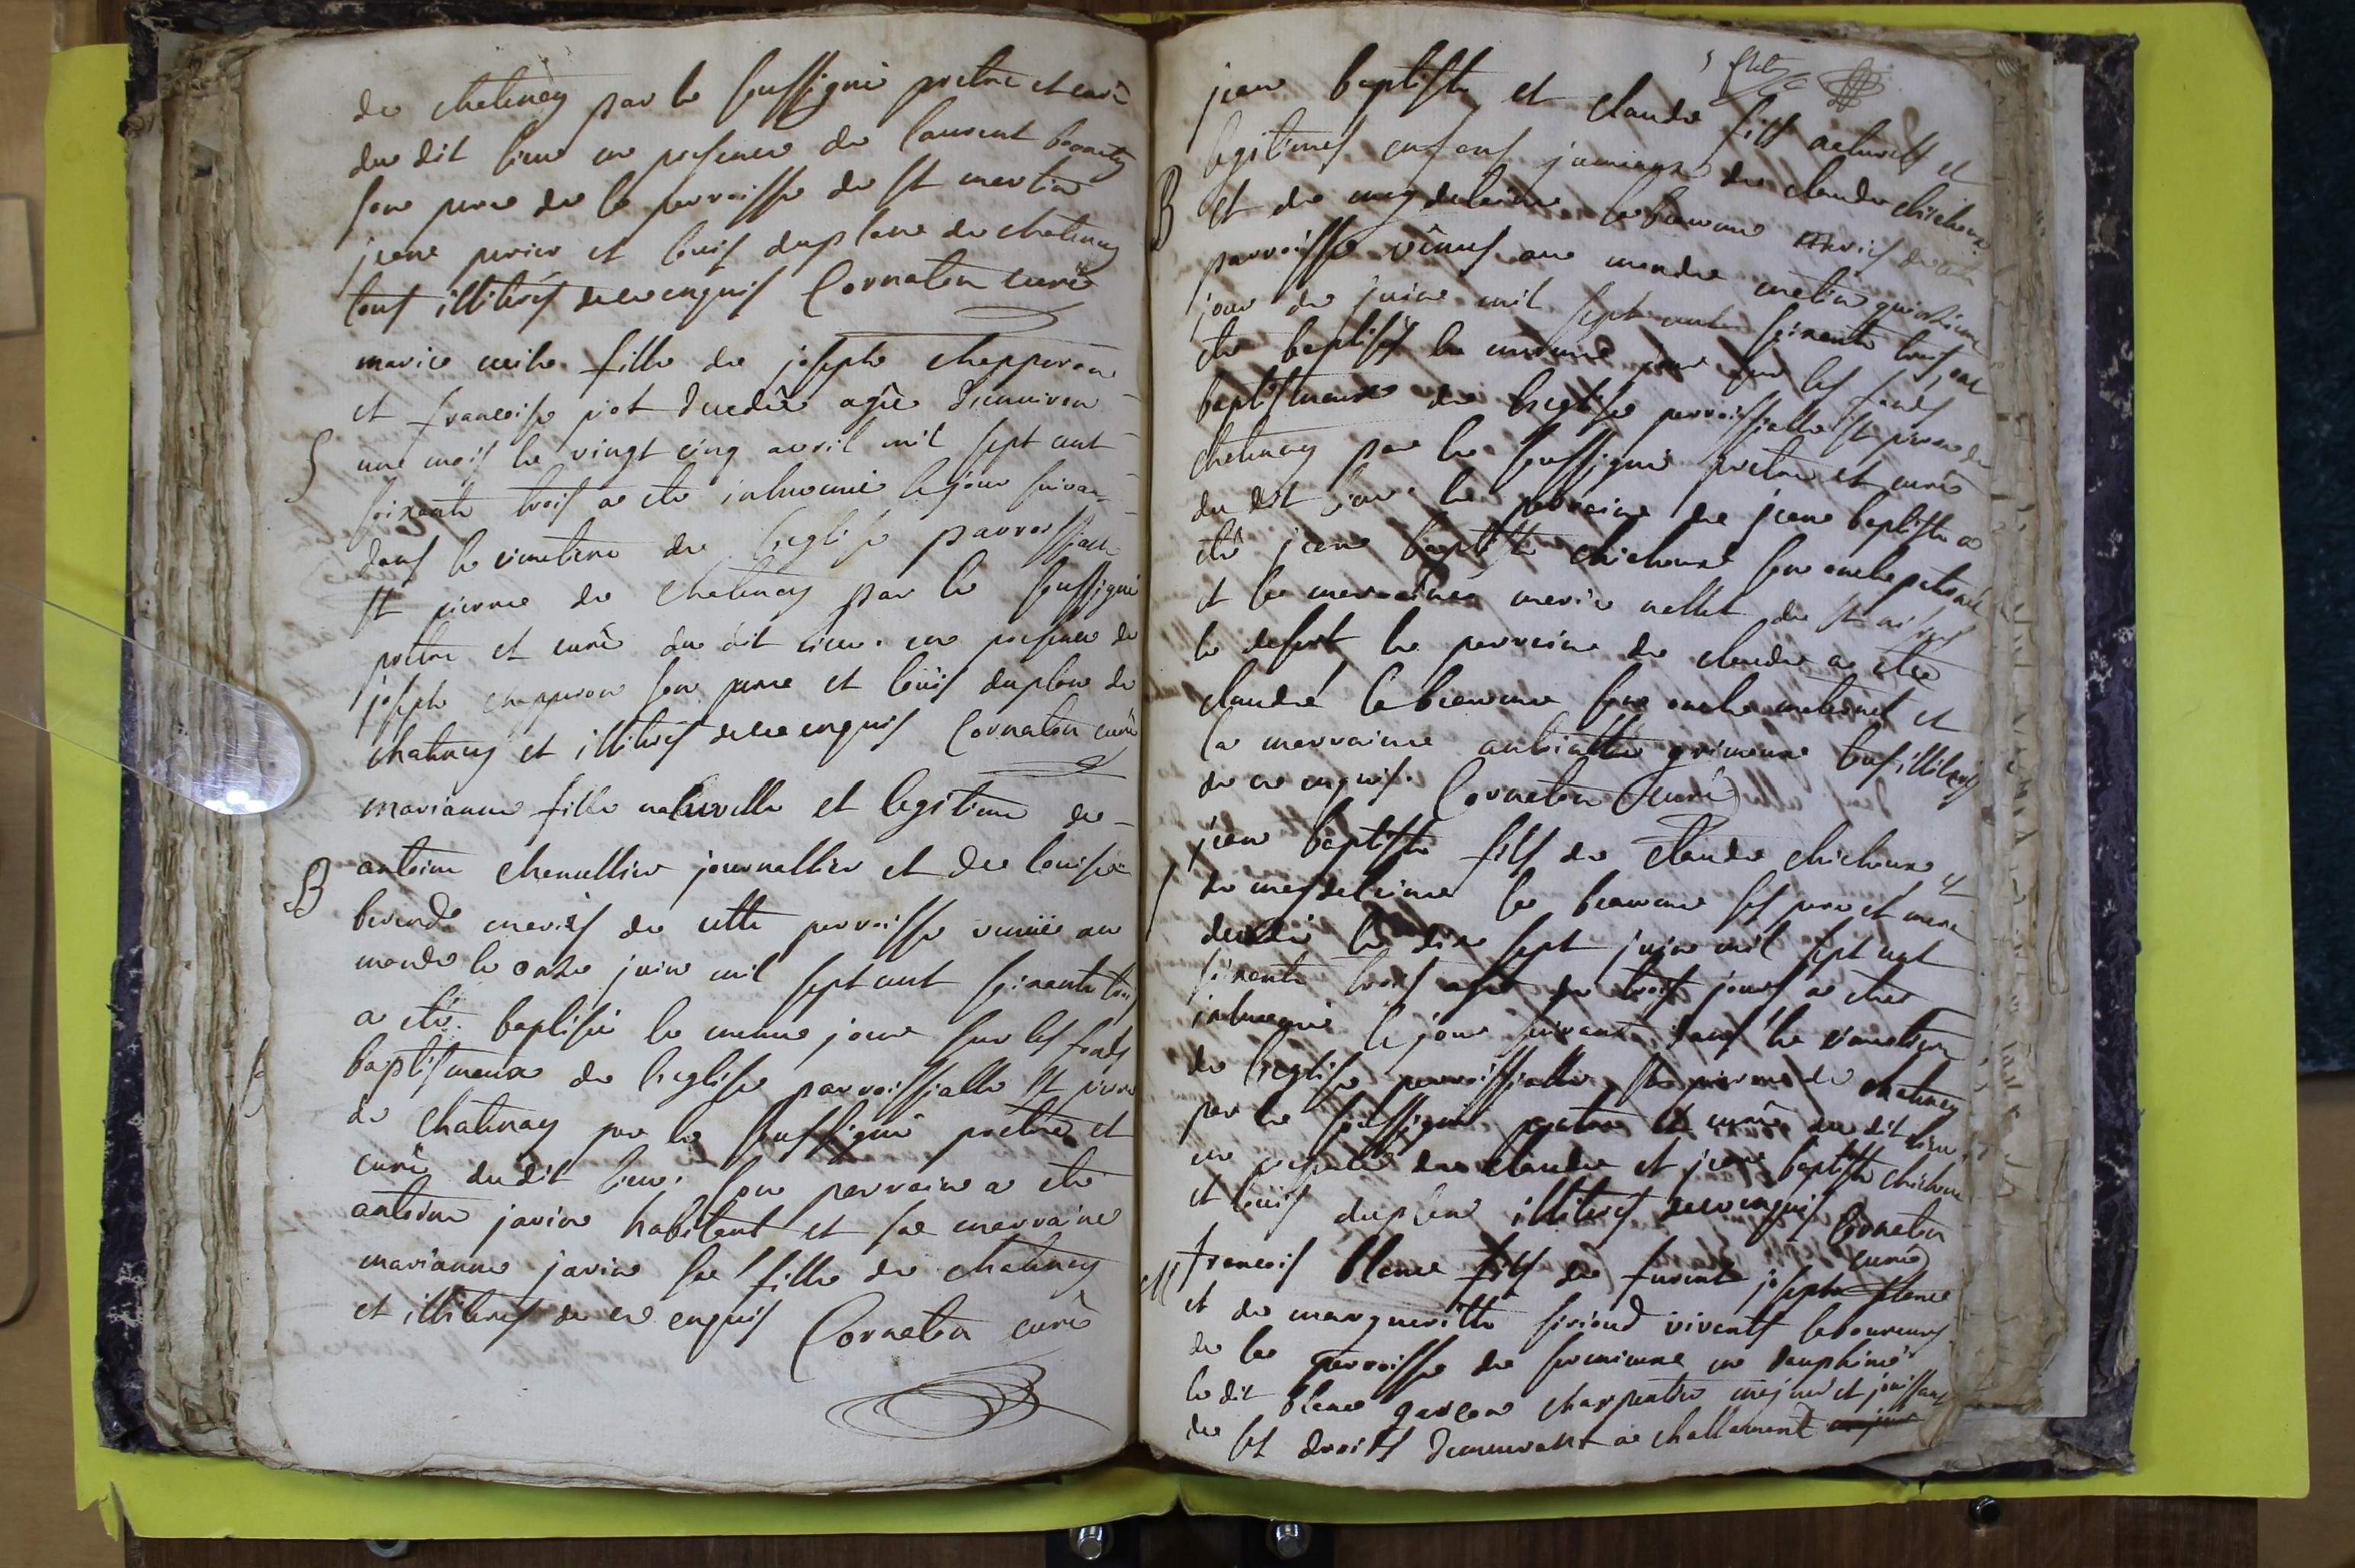 de chatenay par le soussigné pretre et curé
du dit lieu en presence de laurent
son pere de la parroisse de st martin
jean perier et louis duplan de chatenay
tous illiterés de ce enquis Cornaton curé
marie fille de joseph chapperon
et francoise piot decedée agée d'environ
un mois le vingt cinq avril mil sept cent
soixante trois a eté inhumée le jour suivan
dans le cimetiere de leglise parroissialle
st pierre de chatenay par le soussigné
pretre et curé du dit lieu. en presence de
joseph chapperon son pere et loüis duplan de
chatenay et illiterés de ce enquis Cornaton curé
marianne fille naturelle et legitime de
B antoine chevallier journallier et de louise
mariés de cette parroisse venüe au
monde le onze juin mil sept cent soixante trois
a eté baptisée le meme jour sur les fonds
baptismaux de leglise parroissialle st pierre
de chatenay par le soussigné pretre et
curé dudit lieu. son parrain a eté
antoine javin habitant et sa marraine
marianne javin sa fille de chatenay
et illiterés de ce enquis Cornaton curé
jean baptiste et claude fils naturels et
legitimes enfans jumeaux de claude chicheux
B et de magdeleine mariés de cette
parroisse vênus au monde
jour de juin mil sept cent soixante trois ont
eté baptisés le meme jour sur les fonds
baptismaux de leglise parroissialle st pierre de
chatenay par le soussigné pretre et curé
du dit lieu. le parrain de jean baptiste a
eté jean baptiste chicheux son oncle paternel
et la marraine marie nallet de st nisier
le desert le parrain de claude a eté
claude son oncle maternel et
la marraine tous illiterés
de ce enquis. Cornaton curé
jean baptiste fils de Claude chicheux et
de magdeleine ses pere et mere
decedé le dix sept juin mil sept cent
soixante trois agé de trois jours a eté
inhumé le jour suivant dans le cimetiere
de leglise parroissialle st pierre de chatenay
par le soussigné pretre et curé du dit lieu
en presence de claude et jean baptiste chicheux
et loüis duplan illiterés de ce enquis Cornaton
curé
M francois blanc fils de furent joseph blanc
et de margueritte vivants laboureurs
de la parroisse de en dauphiné
le dit blanc garcon charpentier majeur et jouissant
de ses droits demeurant a challamont